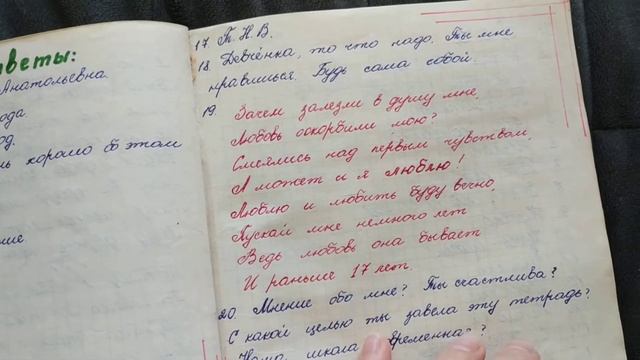 ответы:
Анатольевна
ода
од.
нь хорошо об этом
ние
17. Т. Н. В.
18. Девчёнка, то что надо. Ты мне
нравишься. Будь сама собой.
19. Зачем залезли в душу мне
Любовь оскорбили мою?
Смеялись над первым чувством,
А может и я люблю!
Люблю и любить буду вечно,
Пускай мне немного лет
Ведь любовь она бывает
И раньше 17 лет.
20. Мнение обо мне? Ты счастлива?
С какой целью ты завела эту тетрадь?
школа